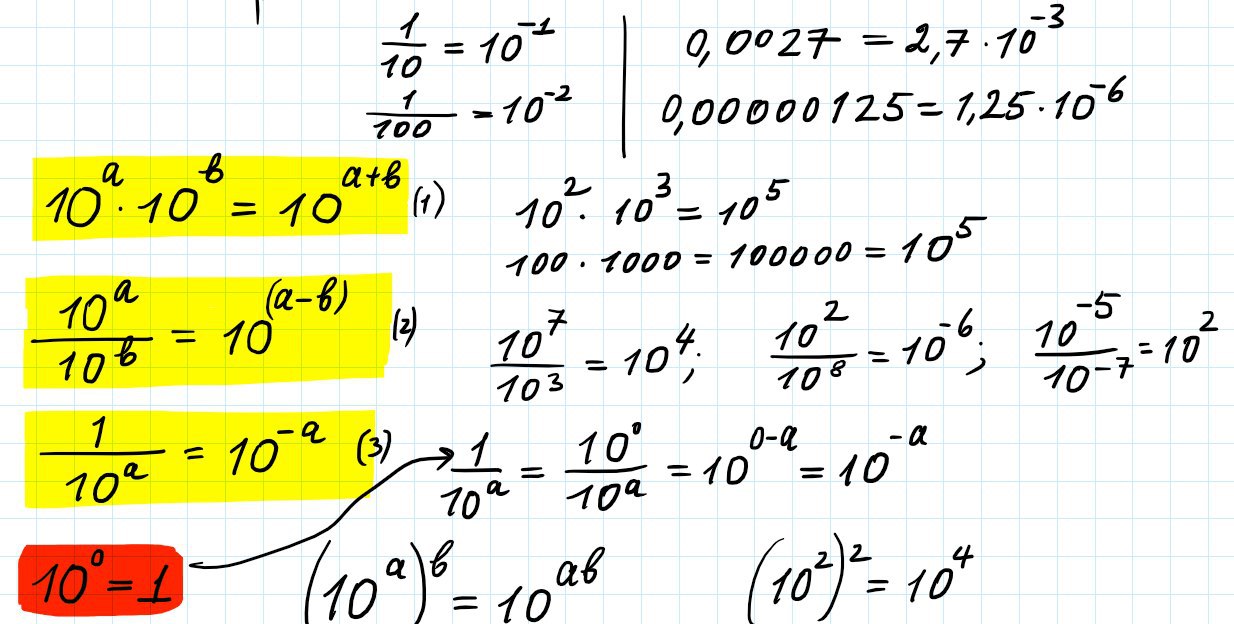 1/10 = 10⁻¹ | 0,0027 = 2,7·10⁻³
1/100 = 10⁻² | 0,00000125 = 1,25·10⁻⁶
10^a · 10^b = 10^(a+b) (1) 10² · 10³ = 10⁵
100 · 1000 = 100000 = 10⁵
10^a/10^b = 10^(a-b) (2) 10⁷/10³ = 10⁴; 10²/10⁸ = 10⁻⁶; 10⁻⁵/10⁻⁷ = 10²
1/10^a = 10^-a (3) 1/10^a = 10⁰/10^a = 10^0-a = 10^-a
10⁰ = 1 (10^a)^b = 10^ab (10²)² = 10⁴